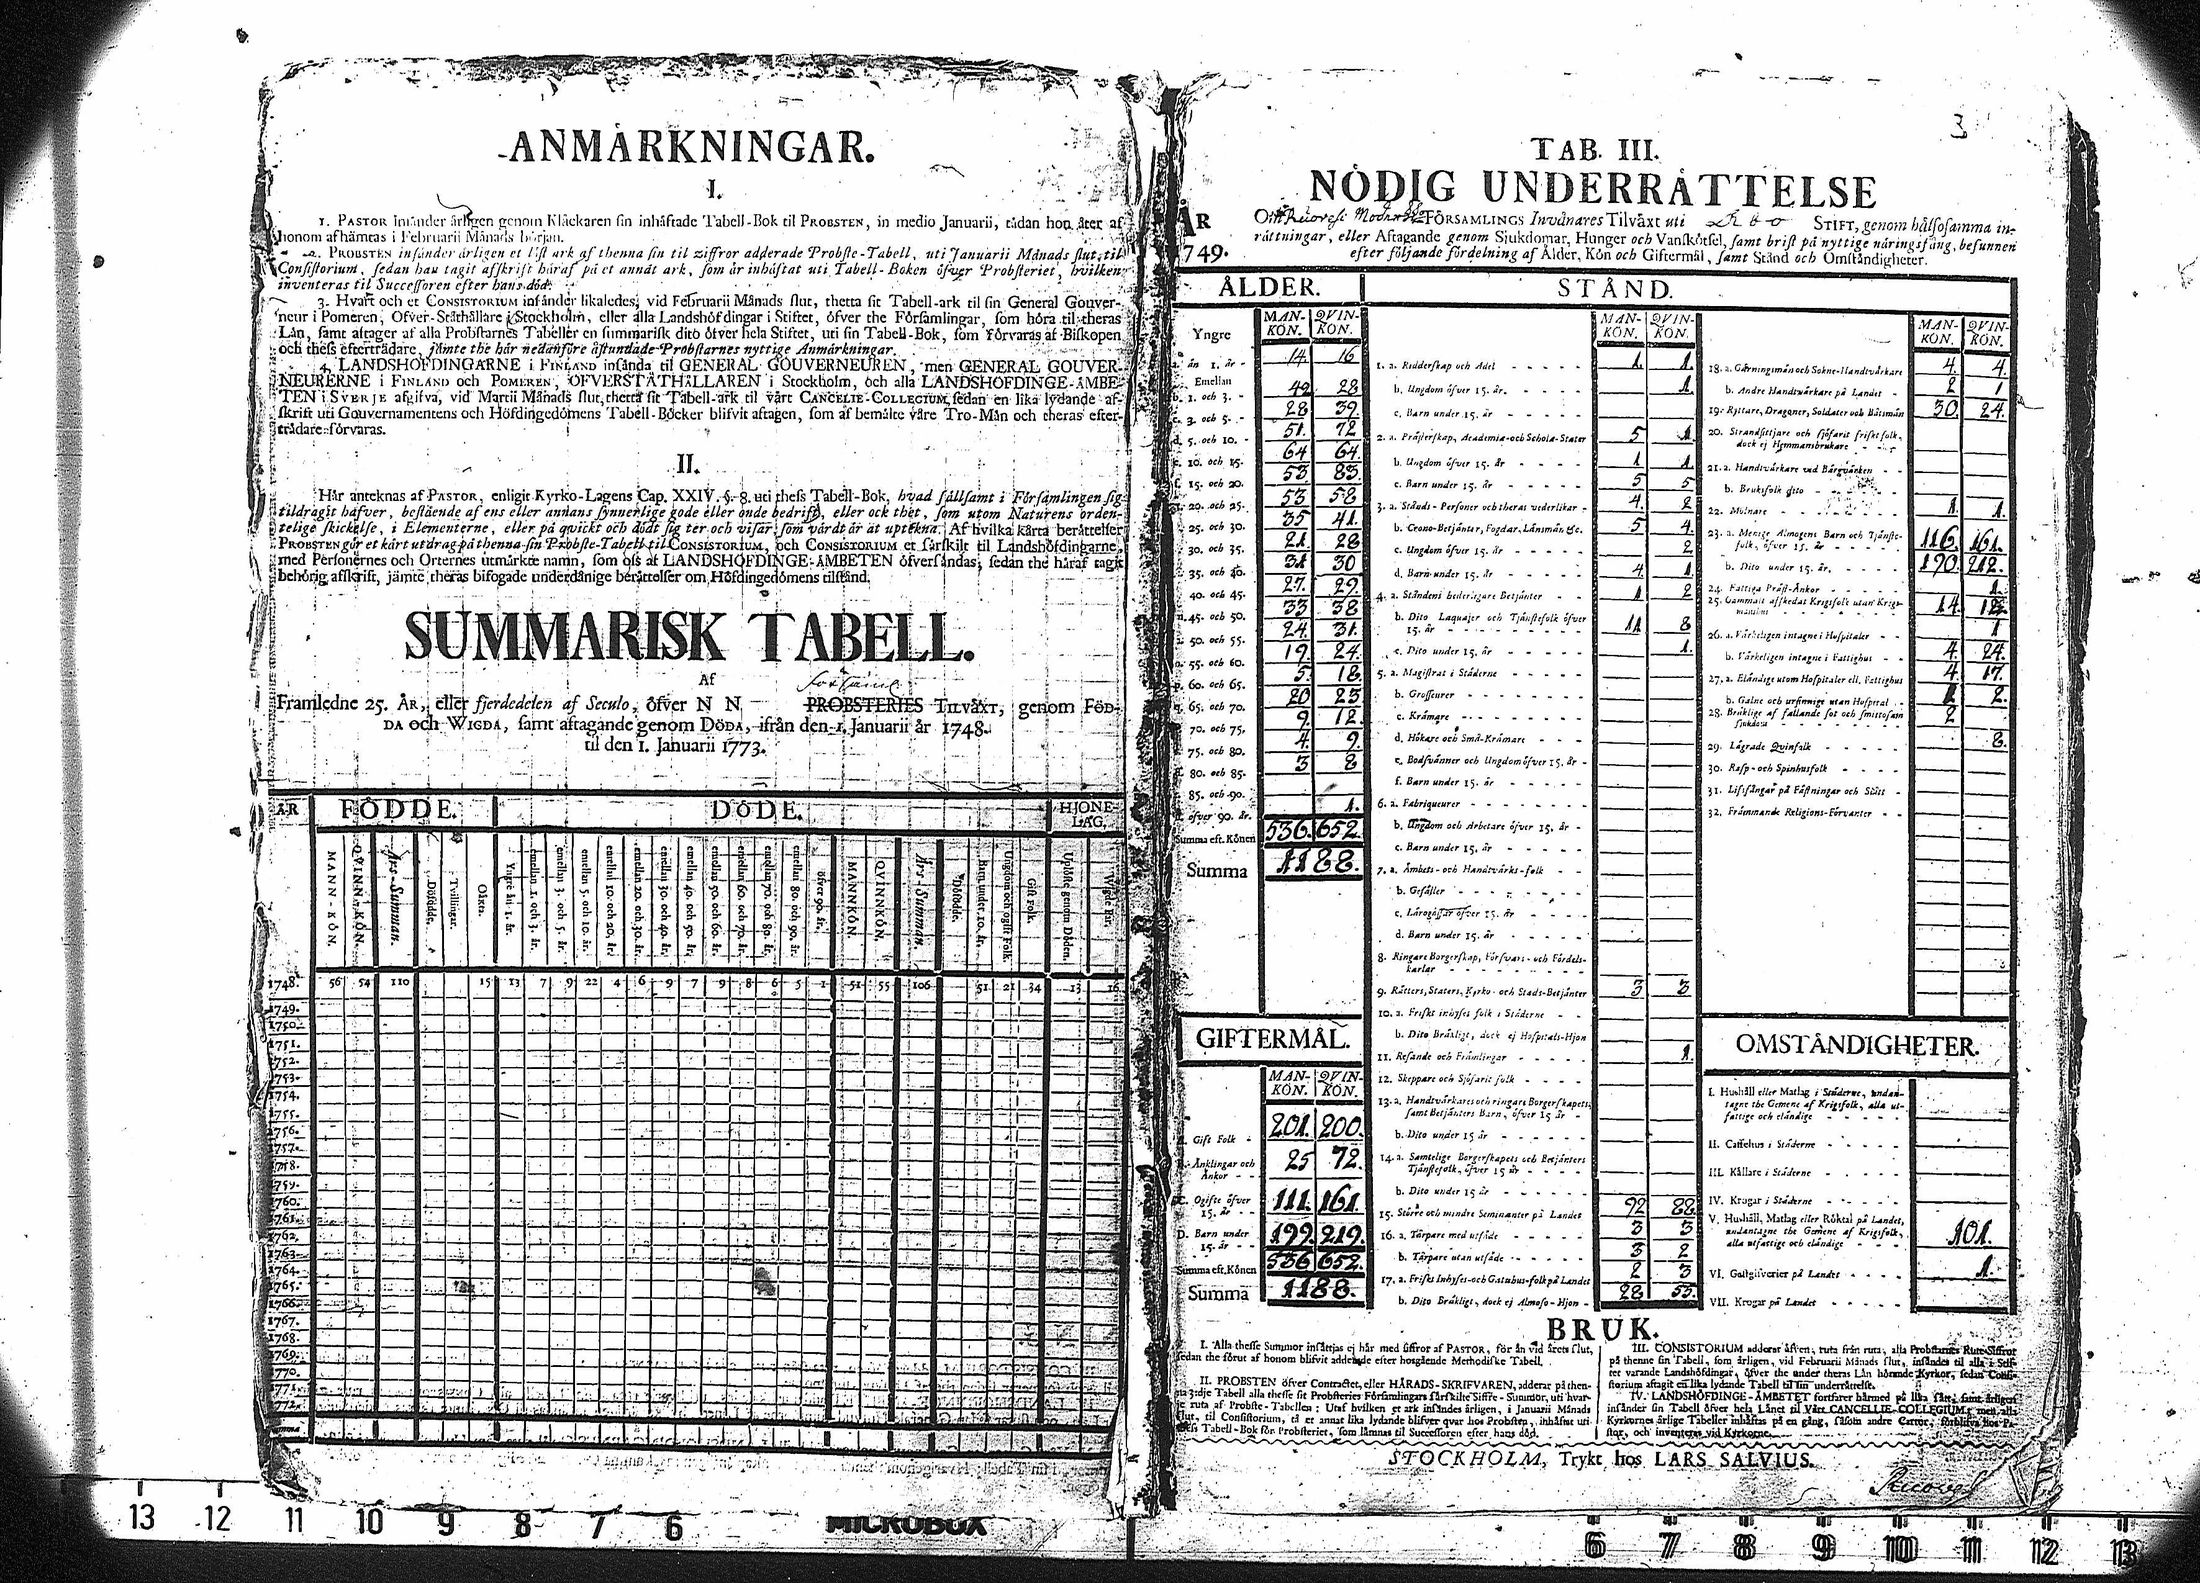 ANMÄRKNINGAR.
I.
1. PASTOR insänder årligen genom Klåckaren sin inhäftade Tabell-Bok til PROBSTEN, in medio Januarii, tädan hon åter af
honom afhämtas i Februarii Månads början.
2. PROBSTEN insänder årligen et löst ark af thenna sin til ziffror adderade Probste-Tabell, uti Januarii Månads slut, til
Consistorium, sedan han tagit afskrift häraf på et annat ark, som är inhäftat uti Tabell-Boken öfver Probsteriet, hvilken
inventeras til Successoren efter hans död.
3. Hvart och et CONSISTORIUM insänder likaledes, vid Februarii Månads slut, thetta sit Tabell-ark til sin General Gouver-
neur i Pomeren, Öfver-Ståthållare i Stockholm, eller alla Landshöfdingar i Stiftet, öfver the Församlingar, som höra til theras
Län, samt aftager af alla Probstarnes Tabeller en summarisk dito öfver hela Stiftet, uti sin Tabell-Bok, som förvaras af Biskopen
och thess efterträdare, jämte the här nedanföre åstundade Probstarnes nyttige Anmärkningar.
4. LANDSHÖFDINGARNE i FINLAND insända til GENERAL GOUVERNEUREN, men GENERAL GOUVER-
NEURERNE i FINLAND och POMEREN, ÖFVERSTÅTHÅLLAREN i Stockholm, och alla LANDSHÖFDINGE-ÄMBE-
TEN i SVERJE afgifva, vid Martii Månads slut, thetta sit Tabell-ark til vårt CANCELIE-COLLEGIUM, sedan en lika lydande af-
skrift uti Gouvernamentens och Höfdingedömens Tabell-Böcker blifvit aftagen, som af bemälte våre Tro-Män och theras efter-
trädare förvaras.
II.
Här anteknas af PASTOR, enligit Kyrko-Lagens Cap. XXIV. §. 8. uti thess Tabell-Bok, hvad sällsamt i Församlingen sig
tildragit hafver, bestående af ens eller annans synnerlige gode eller onde bedrift, eller ock thet, som utom Naturens orden-
telige skickelse, i Elementerne, eller på qvickt och dödt sig ter och visar, som värdt är at uptekna. Af hvilka kårta berättelser
PROBSTEN gör et kårt utdrag på thenna sin Probste-Tabell til CONSISTORIUM, och CONSISTORIUM et särskilt til Landshöfdingarne,
med Personernes och Orternes utmärkte namn, som oss af LANDSHÖFDINGE-ÄMBETEN öfversändas, sedan the häraf tagit
behörig afskrift, jämte theras bifogade underdånige berättelser om Höfdingedömens tilstånd.
SUMMARISK TABELL.
Af
Framledne 25. ÅR, eller fjerdedelen af Seculo, öfver N N PROBSTERIES TILVÄXT, genom FÖD-
DA och WIGDA, samt aftagande genom DÖDA, ifrån den 1. Januarii år 1748.
til den 1. Januarii 1773.
ÅR FÖDDE. DÖDE. HJONE-LAG.
MANN-KÖN. QVINN-KÖN. Års-Summan. Dödfödde. Tvillingar. Oäkta. Yngre än 1. år. emellan 1. och 3. år. emellan 3. och 5. år. emellan 5. och 10. år. emellan 10. och 20. år. emellan 20. och 30. år. emellan 30. och 40. år. emellan 40. och 50. år. emellan 50. och 60. år. emellan 60. och 70. år. emellan 70. och 80. år. emellan 80. och 90. år. öfver 90. år. MANNKÖN. QVINNKÖN. Års-Summan. Dödfödde. Barn under 10. år. Ungdom och ogift Folk. Gift Folk. Uplöste genom Döden. Wigde Par.
1748. 56 54 110 15 13 7 9 22 4 6 9 7 9 8 6 5 1 51 55 106 51 21 34 13 16
1749.
1750.
1751.
1752.
1753.
1754.
1755.
1756.
1757.
1758.
1759.
1760.
1761.
1762.
1763.
1764.
1765.
1766.
1767.
1768.
1769.
1770.
1771.
1772.
3
TAB. III.
NÖDIG UNDERRÄTTELSE
ÅR 1749.
Om Ruovesi FÖRSAMLINGS Invånares Tilväxt uti Åbo STIFT, genom hälsosamma in-
rättningar, eller Aftagande genom Sjukdomar, Hunger och Vanskötsel, samt brist på nyttige näringsfång, befunnen
efter följande fördelning af Ålder, Kön och Giftermål, samt Stånd och Omständigheter.
ÅLDER. STÅND.
MAN-KÖN. QVIN-KÖN.
Yngre än 1. år - 14 16
Emellan
b. 1. och 3. - 49 28
c. 3. och 5. - 28 39.
d. 5. och 10. - 51. 72
e. 10. och 15. 64 64.
f. 15. och 20. 53 83.
g. 20. och 25. 53 58
25. och 30. 35 41.
30. och 35. 21 28
35. och 40. 31 30
40. och 45. 27. 29.
45. och 50. 33 38
50. och 55. 24. 31.
55. och 60. 19 24.
60. och 65. 5. 18.
65. och 70. 20 25
70. och 75. 9. 12.
75. och 80. 4. 9.
80. och 85. 3 8
85. och 90.
öfver 90. år. 1.
Summa eft. Könen 536. 652
Summa 1188.
GIFTERMÅL.
MAN-KÖN. QVIN-KÖN.
A. Gift Folk - 201. 200.
B. Änklingar och Änkor - 25 72.
C. Ogifte öfver 15. år - 111. 161.
D. Barn under 15. år - 199. 219.
Summa eft. Könen 536 652.
Summa 1188.
MAN-KÖN. QVIN-KÖN.
1. a. Ridderskap och Adel 1. 1.
b. Ungdom öfver 15. år. 1.
c. Barn under 15. år
2. a. Prästerskap, Academie- och Schola-Stater 5 1
b. Ungdom öfver 15. år 1 1.
c. Barn under 15. år 5 5
3. a. Stånds-Personer och theras vederlikar 4. 2
b. Crono-Betjänter, Fogdar, Länsmän &c. 5 4.
c. Ungdom öfver 15. år 2
d. Barn under 15. år 4 1.
4. a. Ståndens hederligare Betjänter 1 2
b. Dito Laquajer och Tjänstefolk öfver 15. år 11 8
c. Dito under 15. år 1.
5. a. Magistrat i Städerne
b. Grosseurer
c. Krämare
d. Hökare och Små-Krämare
e. Bodsvänner och Ungdom öfver 15. år
f. Barn under 15. år
6. a. Fabriqueurer
b. Ungdom och Arbetare öfver 15. år
c. Barn under 15. år
7. a. Ämbets- och Handtvärks-folk
b. Gesäller
c. Lärogåssar öfver 15. år
d. Barn under 15. år
8. Ringare Borgerskap, Försvars- och Fördels-karlar
9. Rätters, Staters, Kyrko- och Stads-Betjänter 3 3
10. a. Friskt inhyses folk i Städerne
b. Dito Bräkligt, dock ej Hospitals-Hjon
11. Resande och Främlingar 1
12. Skeppare och Sjöfarit folk
13. a. Handtvärkares och ringare Borgerskapets, samt Betjänters Barn, öfver 15 år
b. Dito under 15 år
14. a. Samtelige Borgerskapets och Betjänters Tjänstefolk, öfver 15 år
b. Dito under 15 år
15. Större och mindre Seminanter på Landet 92 88
16. a. Torpare med utsäde 3 3
b. Torpare utan utsäde 3 2
17. a. Friskt Inhyses- och Gatuhus-folk på Landet 2 3
b. Dito Bräkligt, dock ej Almoso-Hjon 28 55.
MAN-KÖN. QVIN-KÖN.
18. a. Gärningsmän och Sokne-Handtvärkare 4. 4.
b. Andre Handtvärkare på Landet 2 1
19. Ryttare, Dragoner, Soldater och Båtsmän 30. 24.
20. Strandsittjare och sjöfarit friskt folk, dock ej Hemmansbrukare
21. a. Handtvärkare ved Bärgvärken
b. Bruksfolk dito
22. Mölnare 1 1.
23. a. Menige Almogens Barn och Tjänste-folk, öfver 15. år 116. 161.
b. Dito under 15. år. 190. 212.
24. Fattiga Präst-Änkor 1.
25. Gammalt afskedat Krigsfolk utan Krigsmanshus 14
26. a. Värkeligen intagne i Hospitaler 1
b. Värkeligen intagne i Fattighus 4. 24.
27. a. Eländige utom Hospitaler ell. Fattighus 4. 17.
b. Galne och ursinnige utan Hospital 2.
28. Bräklige af fallande sot och smittosam sjukdom 2
29. Lägrade Qvinfolk 8.
30. Rasp- och Spinhusfolk
31. Lifsfångar på Fästningar och Slått
32. Främmande Religions-Förvanter
OMSTÄNDIGHETER.
I. Hushåll eller Matlag i Städerne, undan-
tagne the Gemene af Krigsfolk, alla ut-
fattige och eländige
II. Caffehus i Städerne
III. Källare i Städerne
IV. Krogar i Städerne
V. Hushåll, Matlag eller Röktal på Landet,
undantagne the Gemene af Krigsfolk,
alla utfattige och eländige 101.
VI. Gästgifverier på Landet 1.
VII. Krogar på Landet
BRUK.
I. Alla thesse Summor insättjas ej här med siffror af PASTOR, för än vid årets slut,
sedan the förut af honom blifvit adderade efter hosgående Methodiske Tabell.
II. PROBSTEN öfver Contractet, eller HÄRADS-SKRIFVAREN, adderar på then-
na 3:dje Tabell alla thesse sit Probsteries Församlingars särskilte Siffre-Summor, uti hvar-
je ruta af Probste-Tabellen: Utaf hvilken et ark insändes årligen, i Januarii Månads
slut, til Consistorium, tå et annat lika lydande blifver qvar hos Probsten, inhäftat uti
thess Tabell-Bok för Probsteriet, som lämnas til Successoren efter hans död.
III. CONSISTORIUM adderar äfven, ruta från ruta, alla Probstarnes Rute-Siffror
på thenne sin Tabell, som årligen, vid Februarii Månads slut, insändes til alla i Stif-
tet varande Landshöfdingar, öfver the under theras Län hörande Kyrkor, sedan Consi-
storium aftagit en lika lydande Tabell til sin underrättelse.
IV. LANDSHÖFDINGE-ÄMBETET fortfarer härmed på lika sätt, samt årligen
insänder sin Tabell öfver hela Länet til Vårt CANCELLIE-COLLEGIUM; men alla
Kyrkornes årlige Tabeller inhäftas på en gång, såsom andre Cartor, förblifva hos Pa-
stor, och inventeras vid Kyrkorne.
STOCKHOLM, Trykt hos LARS SALVIUS.
Ruovesi
13 12 11 10 9 8 7 6 MICROBOX 6 7 8 9 10 11 12 13